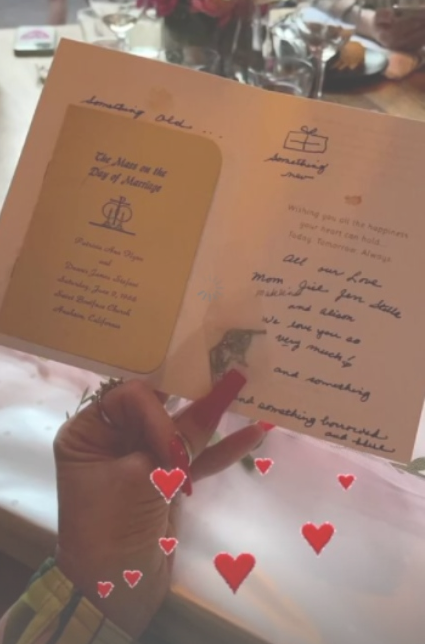 Something old...
The Mass on the
Day of Marriage
Patricia Ann
and
James
Saturday, June 2,
Saint Boniface Church
Anaheim, California
Something
new
Wishing you all the happiness
your heart can hold...
Today. Tomorrow. Always
All our Love
Mom Jen
and Alison
We love you so
very much!
and something
and something borrowed
and blue